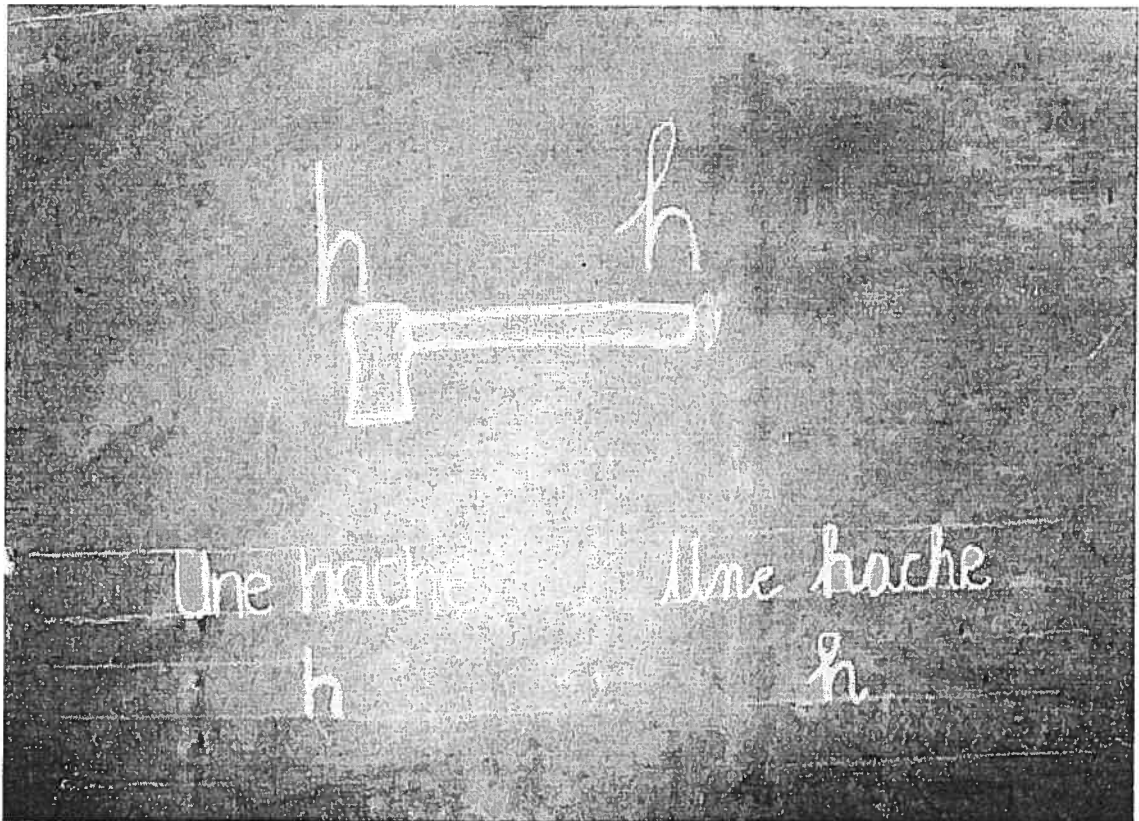 h h
Une hache Une hache
h h